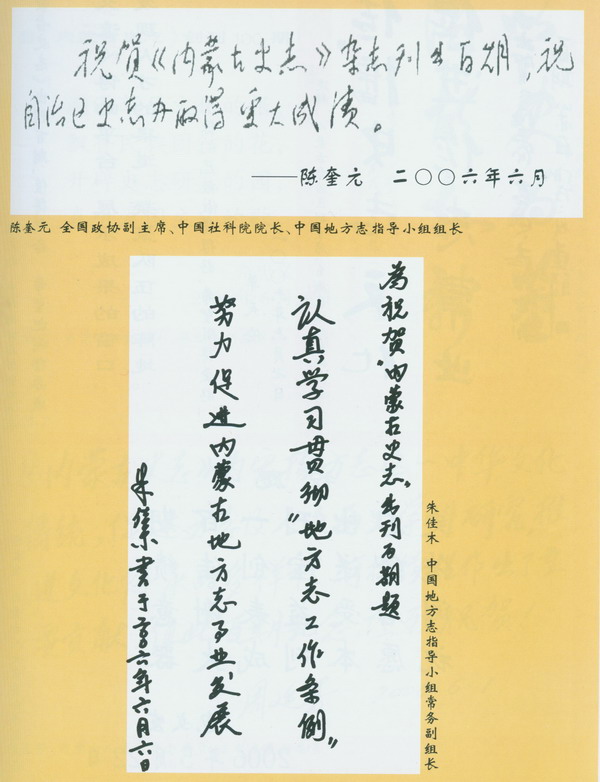 祝賀《内蒙古史志》杂志刊出百期,祝
自治区史志办取得更大成绩。
——陈奎元 二〇〇六年六月
陈奎元 全国政协副主席、中国社科院院长、中国地方志指导小组组长
为祝贺“内蒙古史志”出刊百期题
认真学习贯彻“地方志工作条例”
努力促进内蒙古地方志事业发展
朱佳木 书于二〇〇六年六月六日
朱佳木 中国地方志指导小组常务副组长